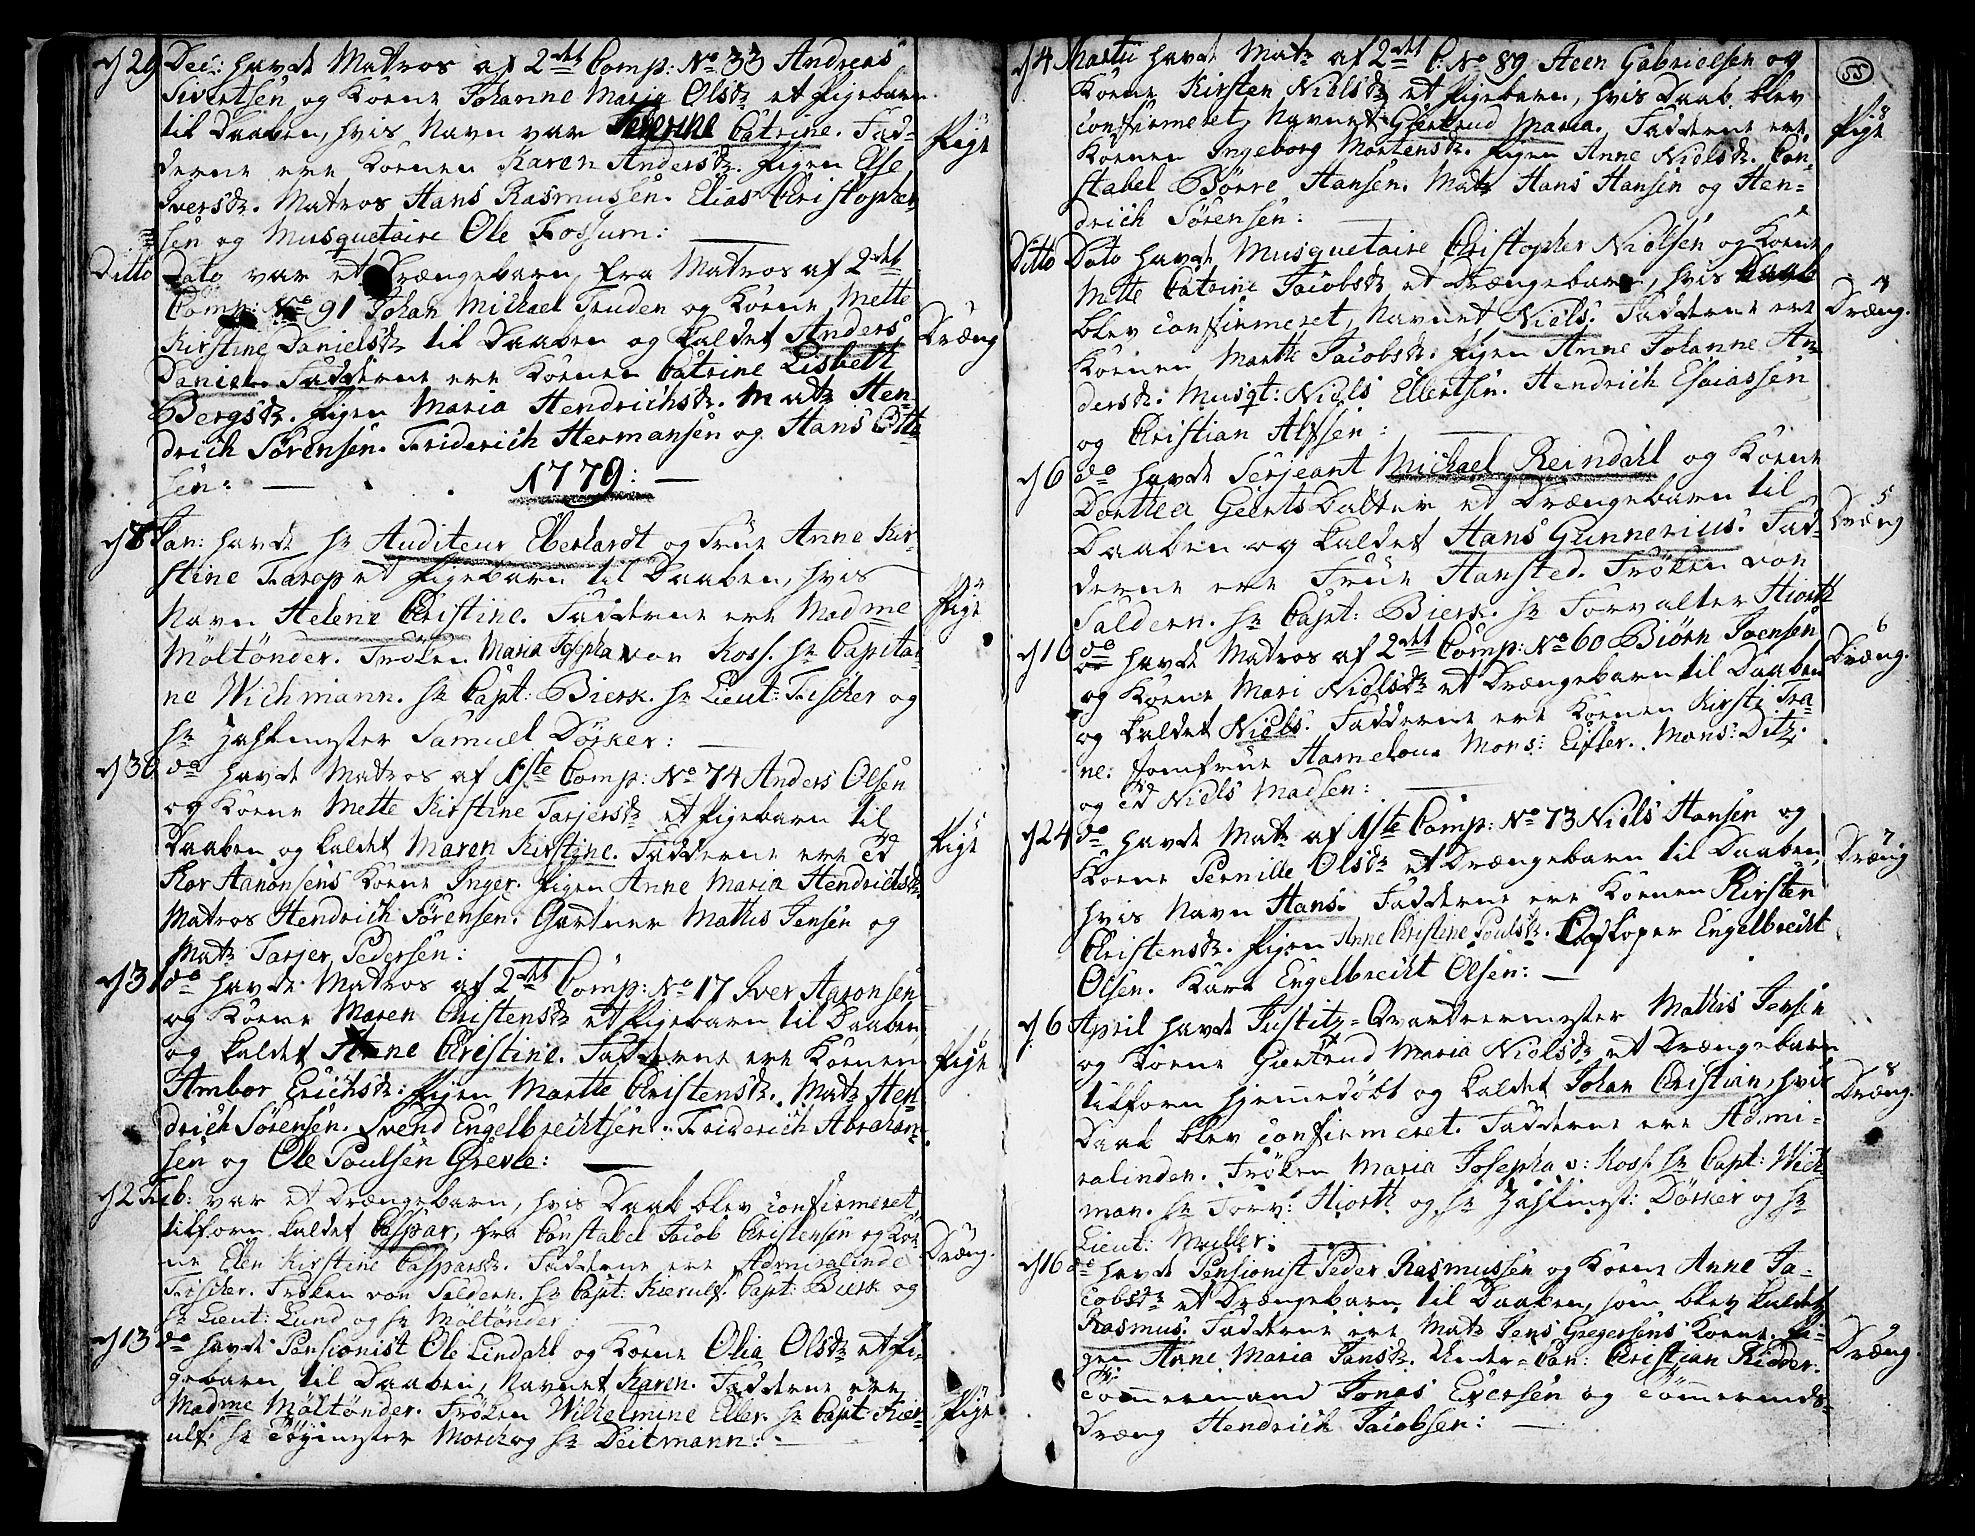 d 29 Dec: havde Matros af 2det Comp: No 33 Andreas
Sivertsen og Kone Johanne Maria Olsdr et Pigebarn
til Daaben, hvis Navn var Severine Catrine. Fad-
derne ere Konen Karen Andersdr. Pigen Else
Iversdr. Matros Hans Rasmussen. Elias Christopher-
sen og Musquetaire Ole Fossum:
Pige
Ditto Dato var et Drængebarn fra Matros af 2det
Comp: No 91 Johan Michael Truden og Kone Mette
Kirstine Danielsdr til Daaben og kaldet Anders
Daniel. Fadderne ere Konen Catrine Lisbeth
Bergsdr. Pigen Maria Hendrichsdr. Matr Hen-
drich Sørensen. Friderich Hermansen og Hans Otte
sen:
Dræng
1779:
d 8 Jan: havde Hr Auditeur Eberhardt og Frue Anne Kir-
stine Farop et Pigebarn til Daaben, hvis
Navn Helene Christine. Fadderne ere Madme
Möltönder. Frøken Maria Josepha von Ross. Hr Capitai-
ne Wichmann. Hr Capt: Bierk. Hr Lieut: Fischer og
Hr Zahlmester Samuel Dörker:
Pige
d 30 do havde Matros af 1ste Comp: No 74 Anders Olsen
og Kone Mette Kirstine Tarjersdr et Pigebarn til
Daaben og kaldet Maren Kirstine. Fadderne ere
Kor Aanonsens Kone Inger. Pigen Anne Maria Hendrichsdr
Matros Hendrich Sørensen. Gartner Mathis Jensen og
Matr Tarjer Pedersen:
Pige
d 31 do havde Matros af 2det Comp: No 17 Iver Aaronsen
og Kone Maren Christensdr et Pigebarn til Daaben
og kaldet Anne Christine. Fadderne ere Konen
Ambor Erichsdr: Pigen Marthe Christensdr. Matr Hen-
drich Sørensen. Svend Engelbrechtsen. Friderich Abraham-
sen og Ole Poulsen Greve:
Pige
d 2 Feb: var et Drængebarn, hvis Daab blev confirmeret,
tilforn kaldet Caspar, fra Constabel Jacob Christensen og Ko-
ne Elen Kirstine Caspersdr. Fadderne ere Admiralinde
Fischer. Frøken von Saldern. Hr Capt: Kierulf. Capt: Bierk og
Hr Lieut: Lund og Hr Möltönder:
Dræng.
d 13 do havde Pensionist Ole Lindahl og Kone Olia Olsdr et Pi-
gebarn til Daaben, Navnet Karen. Fadderne ere
Madme Möltönder. Frøken Wilhelmine Eller. Hr Capt Kier-
ulf. Hr Töymester Morch og Hr Deitmann:
Pige
55
d 4 Martii havde Matr af 2det C. No 89 Aeen Gabrielsen og
Kone Kirsten Nielsdr et Pigebarn, hvis Daab blev
confirmeret, Navnet Giertrud Maria. Fadderne ere
Konen Ingeborg Mortensdr. Pigen Anne Nielsdr. Con-
stabel Børre Hansen. Matr Hans Hansen og Hen-
drich Sørensen:
Pige
Ditto Dato havde Musquetaire Christopher Nielsen og Kone
Mette Catrine Jacobsdr et Drængebarn, hvis Daab
blev confirmeret, Navnet Niels. Fadderne ere
Konen Marthe Jacobsdr. Pigen Anne Johanne An-
dersdr. Musqt: Niels Ellertsen. Hendrich Esaiassen
og Christian Alfsen:
4
Dræng.
d 6 do havde Serjeant Michael Reindahl og Kone
Dorthea Geertsdatter et Drængebarn til
Daaben og kaldet Hans Gunnerius. Fad-
derne ere Frue Hansted. Frøken von
Saldern. Hr Capt: Bierk. Hr Forvalter Hiorth
5
Dræng
d 16 do havde Matros af 2det Comp: No 60 Biörn Joensen
og Kone Mari Nielsdr et Drængebarn til Daaben
og kaldet Niels. Fadderne ere Konen Kirsti Tra-
ne: Jomfrue Hamelou. Mons: Eifler. Mons: Ditz.
og Niels Madsen:
6
Dræng.
d 24 do havde Matr af 1ste Comp: No 73 Niels Hansen og
Kone Pernille Olsdr et Drængebarn til Daaben,
hvis Navn Hans. Fadderne ere Konen Kirsten
Christensdr. Pigen Anne Christine Poulsdr. Opløper Engelbrecht
Olsen. Karl Engelbrecht Olsen:
7
Dræng
d 6 April havde Justitz-Qvarteermester Mathis Jensen
og Kone Giertrud Maria Nielsdr et Drængebarn
tilforn hjemmedöbt og kaldet Johan Christian, hvis
Daab blev confirmeret. Fadderne ere Admi-
ralinden. Frøken Maria Josepha v: Ross. Hr Capt: Wich-
man. Hr Forv: Hiorth og Hr Zahlmest: Dörker og Hr
Lieut: Muller:
8
Dræng.
d 16 do havde Pensionist Peder Rasmussen og Kone Anne Ja-
cobsdr et Drængebarn til Daaben, som blev kaldet
Rasmus. Fadderne ere Matr Jens Gregersens Kone. Pi-
gen Anne Maria Jansdr. Under-Can: Christian Ridder.
Tömmermand Jonas Eversen og Tömmermds-
Dræng Hendrich Jacobsen:
9
Dræng.